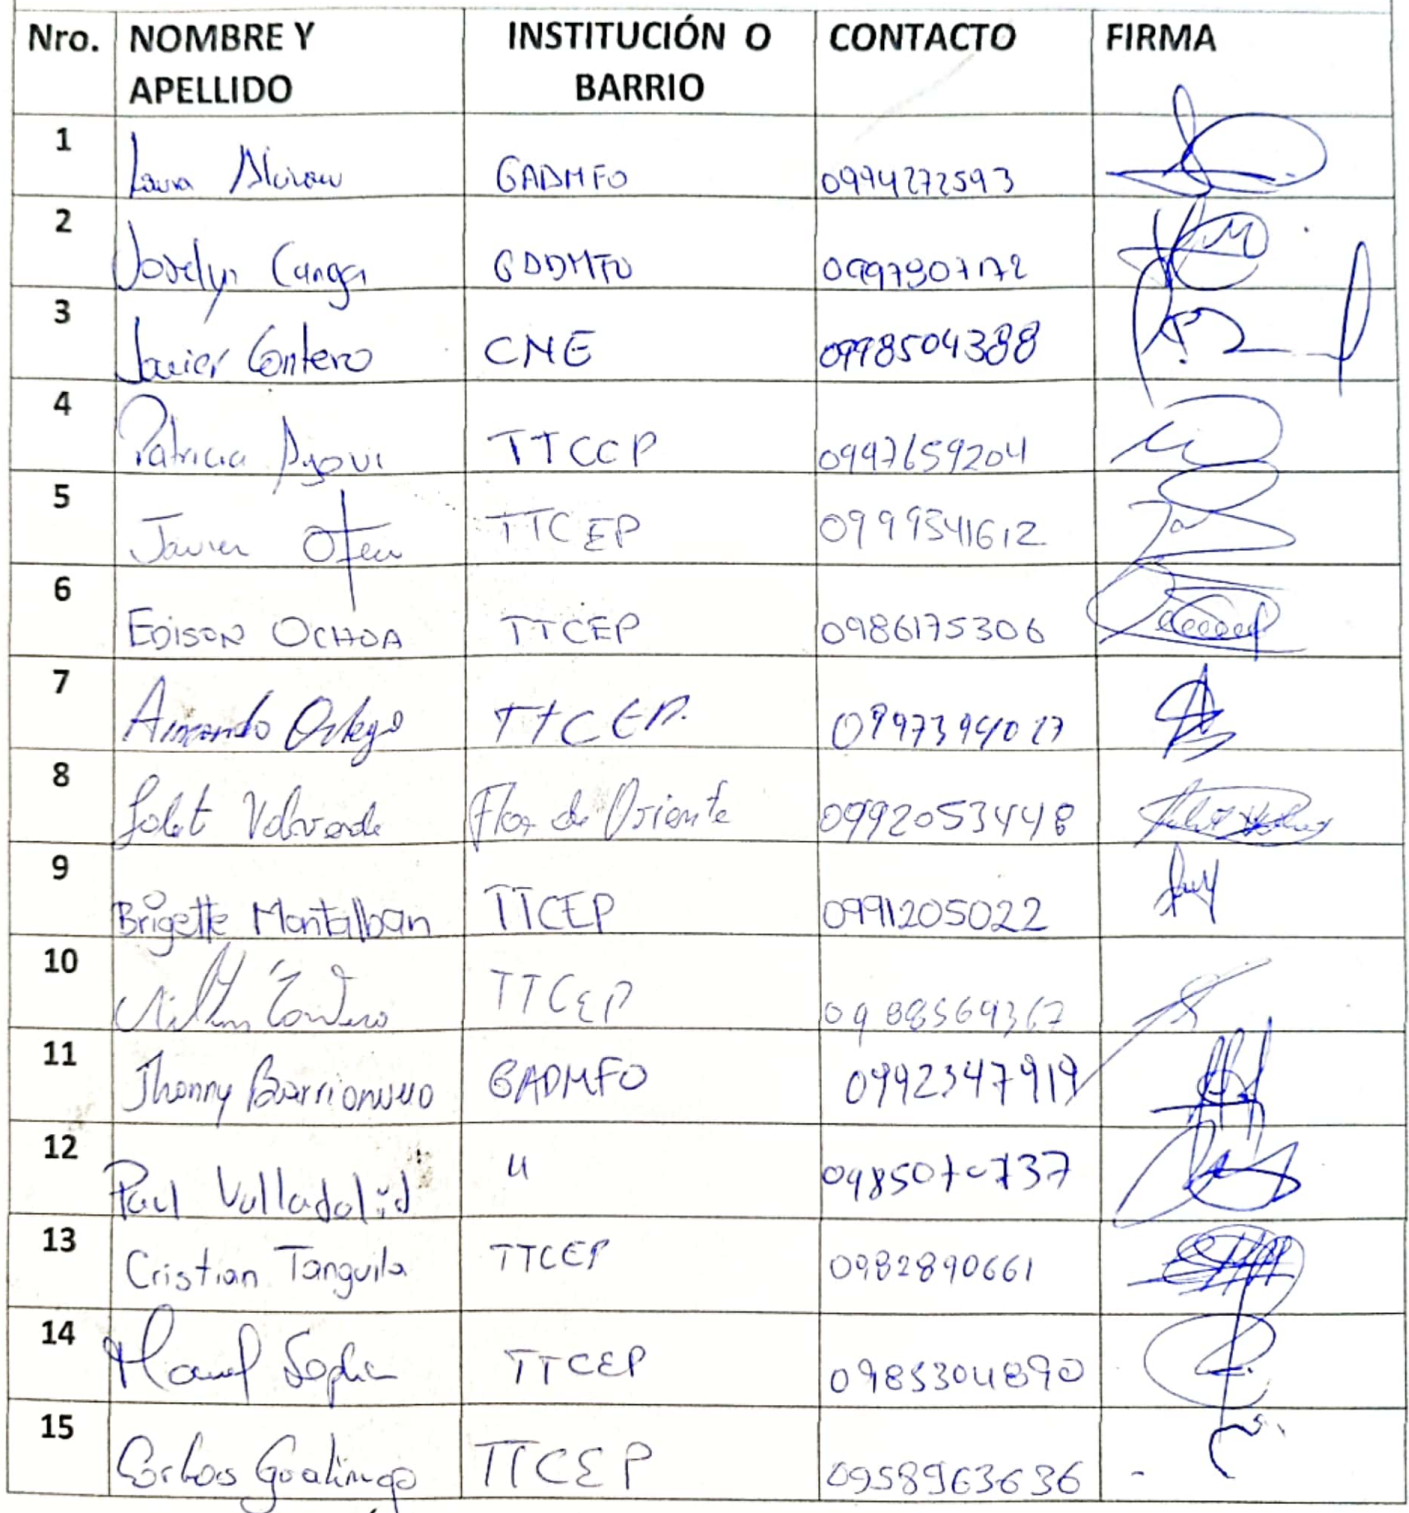 Nro. NOMBRE Y APELLIDO INSTITUCIÓN O BARRIO CONTACTO FIRMA
1 GADMFO 0994272593
2 Joselyn Canga GADMFO 0997907172
3 Javier Contero CNE 0998504388
4 Patricia TTCCP 0997659204
5 Javier TTCEP 0999541612
6 EDISON OCHOA TTCEP 0986175306
7 Armando Ortega TTCEP. 0997394027
8 Valverde Flor de Oriente 0992053448
9 Brigette Montalban TTCEP 0991205022
10 TTCEP 0988569367
11 Jhonny Barrionuevo GADMFO 0992347919
12 Paul Valladolid 11 0985070737
13 Cristian Tanguila TTCEP 0982890661
14 TTCEP 0985304890
15 Carlos Gualinga TTCEP 0958963636